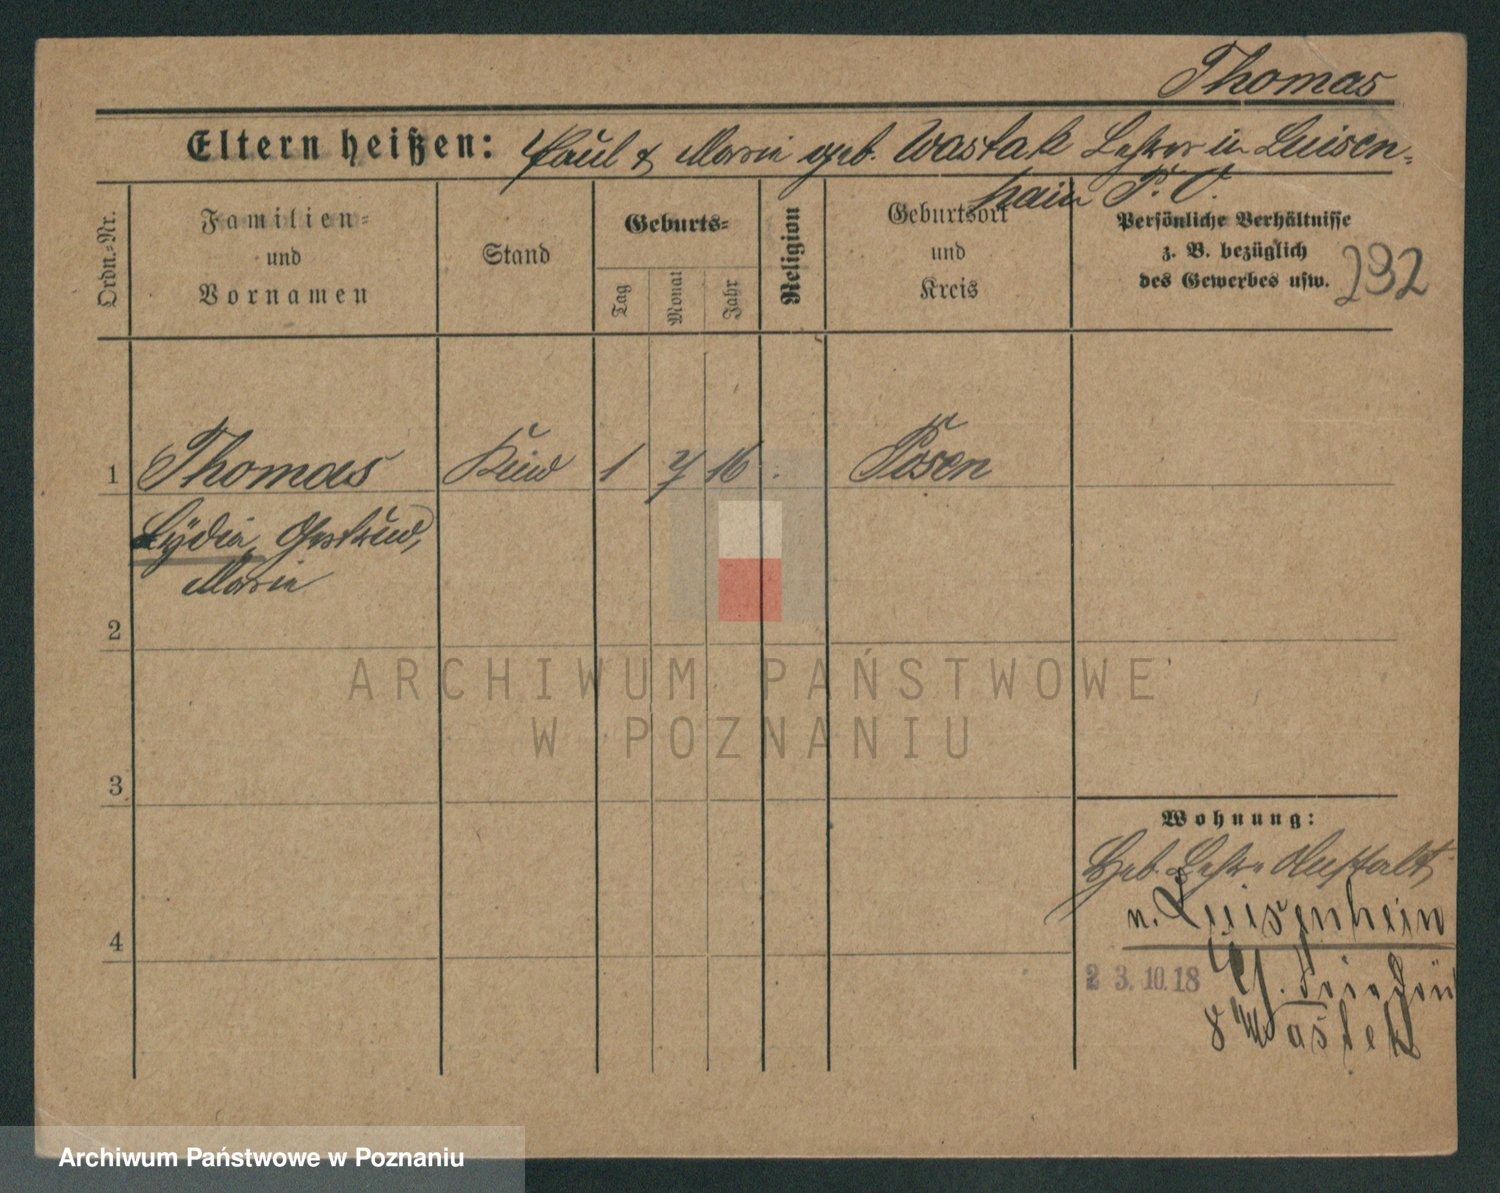 Thomas
Eltern heißen: Paul & Marie geb. Wastak Lehrer in Luisen-
hain P. O.
Ordn.-Nr.
Familien-
und
Vornamen
Stand
Geburts-
Tag
Monat
Jahr
Religion
Geburtsort
und
Kreis
Persönliche Verhältnisse
z. B. bezüglich
des Gewerbes usw.
292
1 Thomas Kind 1 7 16 . Posen
Lydia, Gertrud,
Marie
2
3
4
Wohnung:
Heb. Lehr Anstalt
n. Luisenhein
23.10.18
Wastek
ARCHIWUM PAŃSTWOWE
W POZNANIU
Archiwum Państwowe w Poznaniu